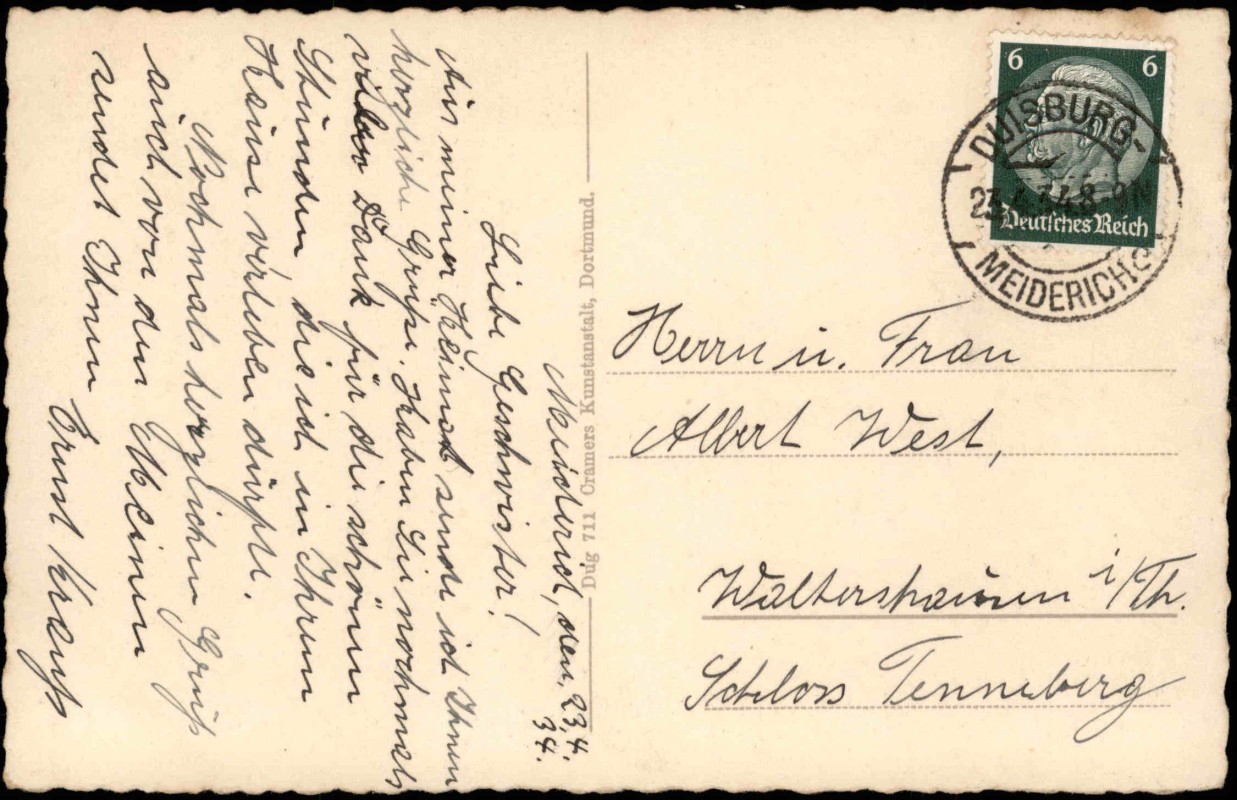 Meiderich, den, 23,4.
34.
Liebe Geschwister!
Aus meiner Heimat sende ich Ihnen
herzliche Grüße. Haben Sie nochmals
vielen Dank für die schönen
Stunden die ich in Ihrem
Hause verleben durfte.
Nochmals herzlichen Gruß
auch von den Meinen
sendet Ihnen
Ernst
Dug 711 Cramers Kunstanstalt, Dortmund.
6 6
Deutsches Reich
DUISBURG-
MEIDERICH
Herrn u. Frau
Albert West,
Waltershausen i/Th.
Schloss Tenneberg